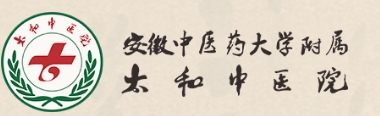 太和中医院
安徽中医药大学附属
太和中医院